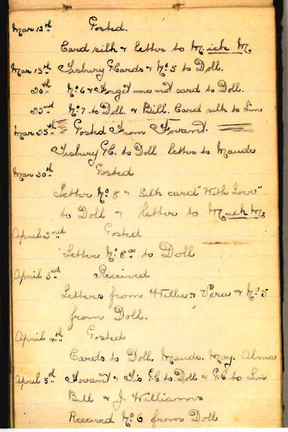 Mar 12th Posted.
Card silk & letter to Mick M
Mar 15th Tisbury 4 Cards & No 5 to Doll.
20th No 6 & Forget me not card to Doll.
22nd No 7 to Doll. & Bill. Card silk to Lin
Mar 25th Posted From Fovant.
Tisbury P.C. to Doll letter to Maude
Mar 30th Posted
Letter No 8 & silk card "With Love"
to Doll & letter to Mick M.
April 2nd Posted
Letter No 8a to Doll
April 3rd Received
Letters from Willie & Vera & No 5
from Doll.
April 4th Posted
Cards to Doll. Maude. May. Alma
April 5th Fovant & Tis P.C to Doll & P.C to Lin
Bill & J. Williams
Received No 6 from Doll